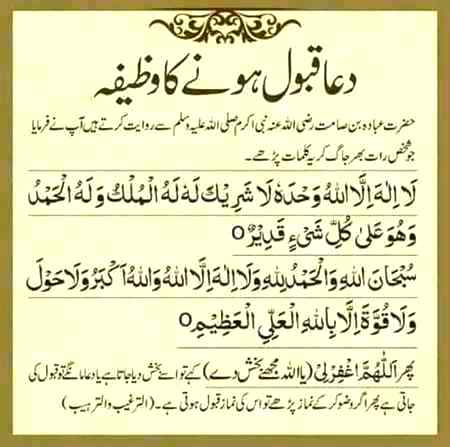 دعا قبول ہونے کا وظیفہ
حضرت عبادہ بن صامت رضی اللہ عنہ نبی اکرم صلی اللہ علیہ وسلم سے روایت کرتے ہیں آپ نے فرمایا
جو شخص رات بھر جاگ کر یہ کلمات پڑھے۔
لَا اِلٰهَ اِلَّا اللهُ وَحْدَهٗ لَا شَرِيْكَ لَهٗ لَهُ الْمُلْكُ وَ لَهُ الْحَمْدُ
وَهُوَ عَلٰى كُلِّ شَىْءٍ قَدِيْرٌ○
سُبْحَانَ اللهِ وَالْحَمْدُ لِلّٰهِ وَلَا اِلٰهَ اِلَّا اللهُ وَاللهُ اَكْبَرُ وَلَا حَوْلَ
وَلَا قُوَّةَ اِلَّا بِاللهِ الْعَلِّىِ الْعَظِيْمِ○
پھر اَللّٰهُمَّ اغْفِرْلِىْ (یا اللہ مجھے بخش دے) کہے تو اسے بخش دیا جاتا ہے یا دعا مانگے تو قبول کی
جاتی ہے پھر اگر وضو کر کے نماز پڑھے تو اس کی نماز قبول ہوتی ہے۔ (الترغیب والترہیب)